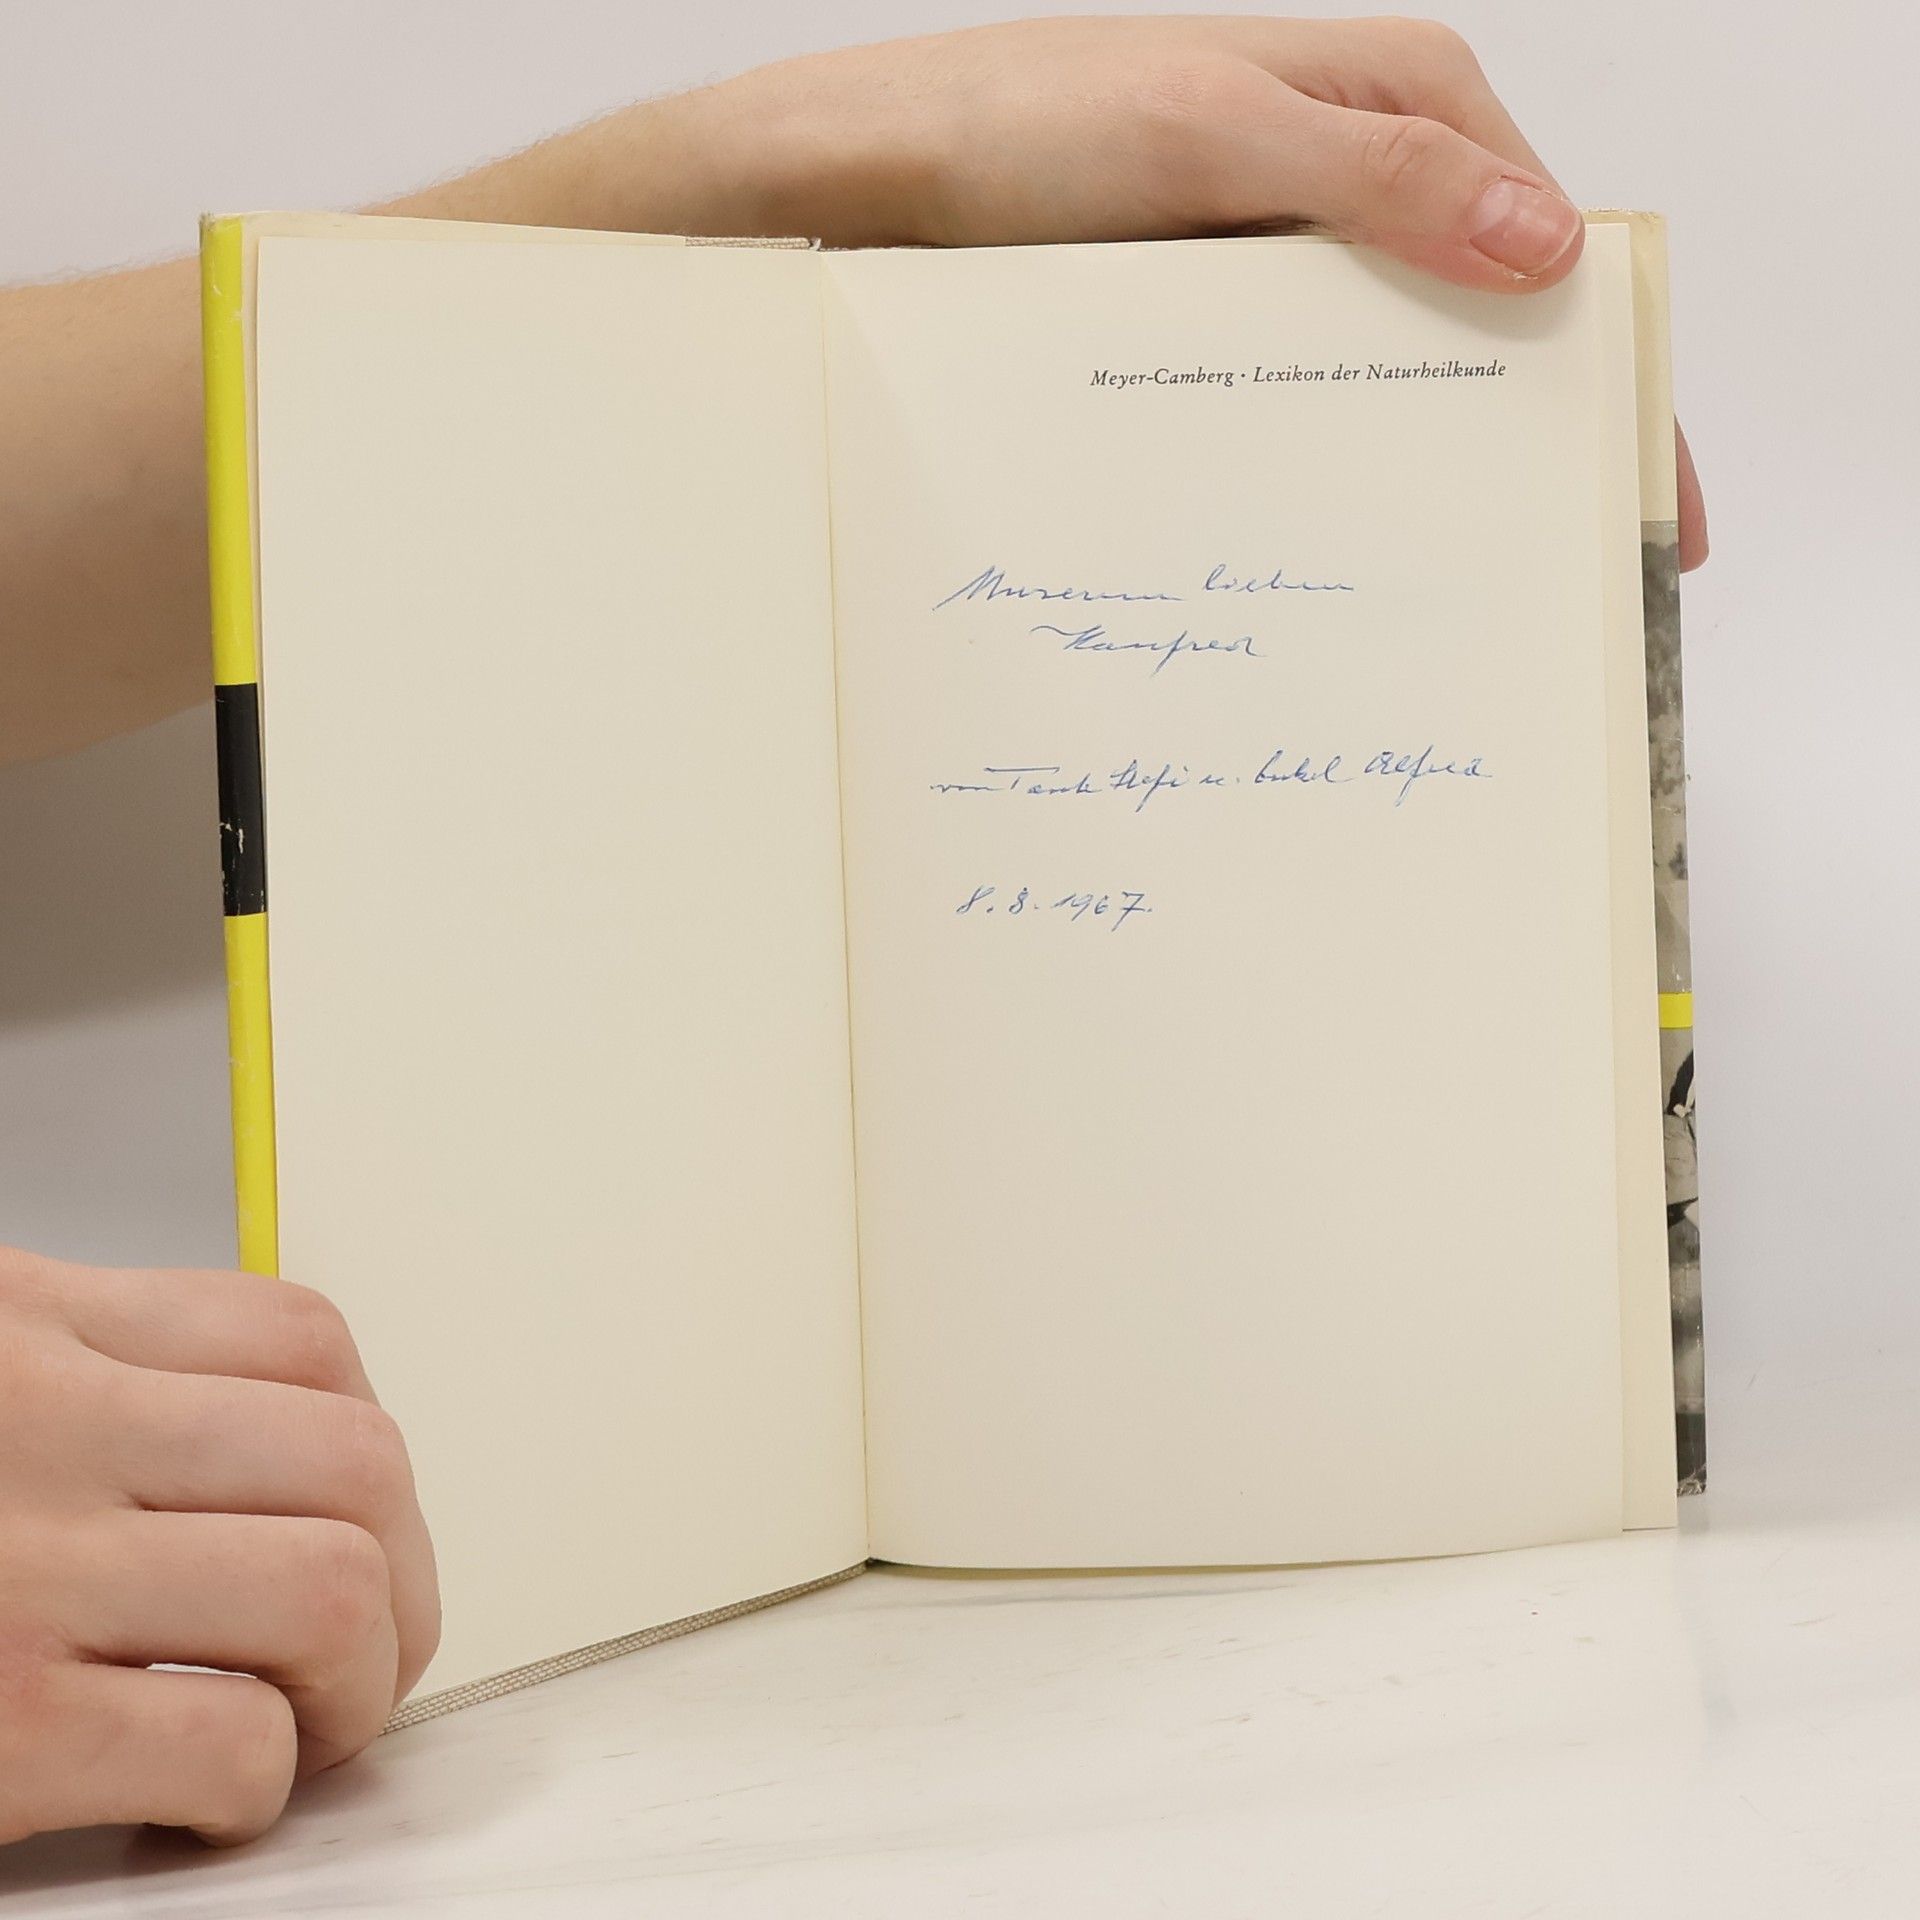 Meyer-Camberg · Lexikon der Naturheilkunde
Unserem lieben
Manfred
von Tante Stefi u. Onkel Alfred
8. 8. 1967.